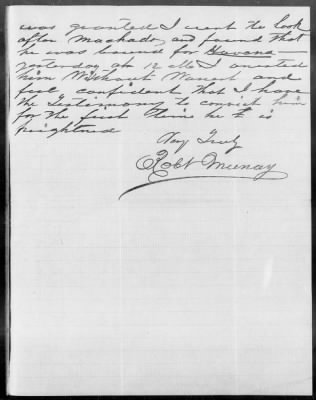 was granted I went to look
after Machado, and found that
he was bound for Havana—
yesterday at 12 M I arrested
him without Warrant and
feel confident that I have
the Testimony to convict him
for the first time he is
frightened
Very Truly
Robt Murray